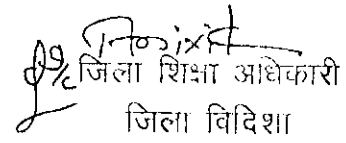 जिला शिक्षा अधिकारी
जिला विदिशा